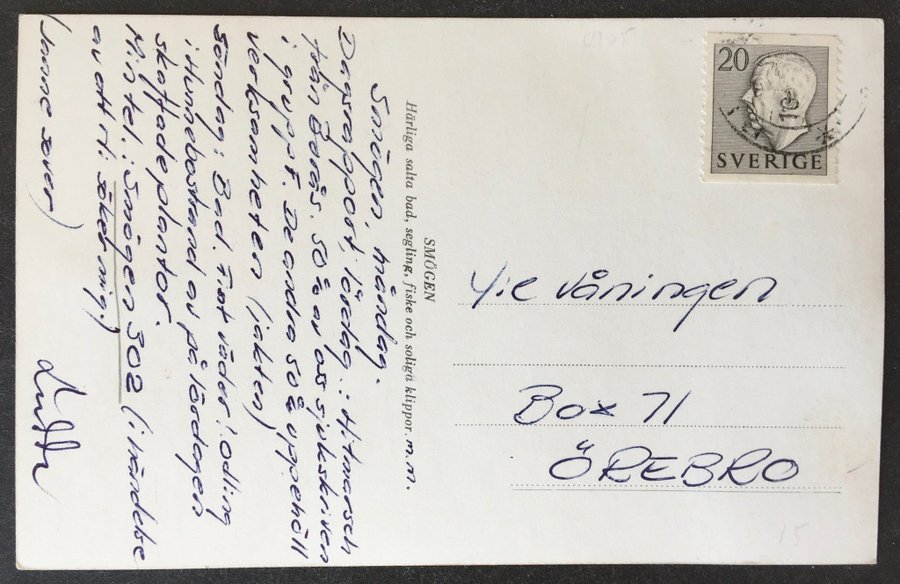 Smögen, måndag.
Dagsrapport lördag: Hitmarsch
från Borås. 50% av oss sjukskriven
i grupp I. De andra 50% uppehöll
verksamheten (jakten)
Söndag: Bad. Fint väder: odling
i Hunnebostrand av på lördagen
skaffade plantor.
Min tel.: Smögen 302 (i händelse
av att ni söker mig.)
(annc sover)
SMÖGEN
Härliga salta bad, segling, fiske och soliga klippor.m.m.
20
SVERIGE
4:e våningen
Box 71
ÖREBRO